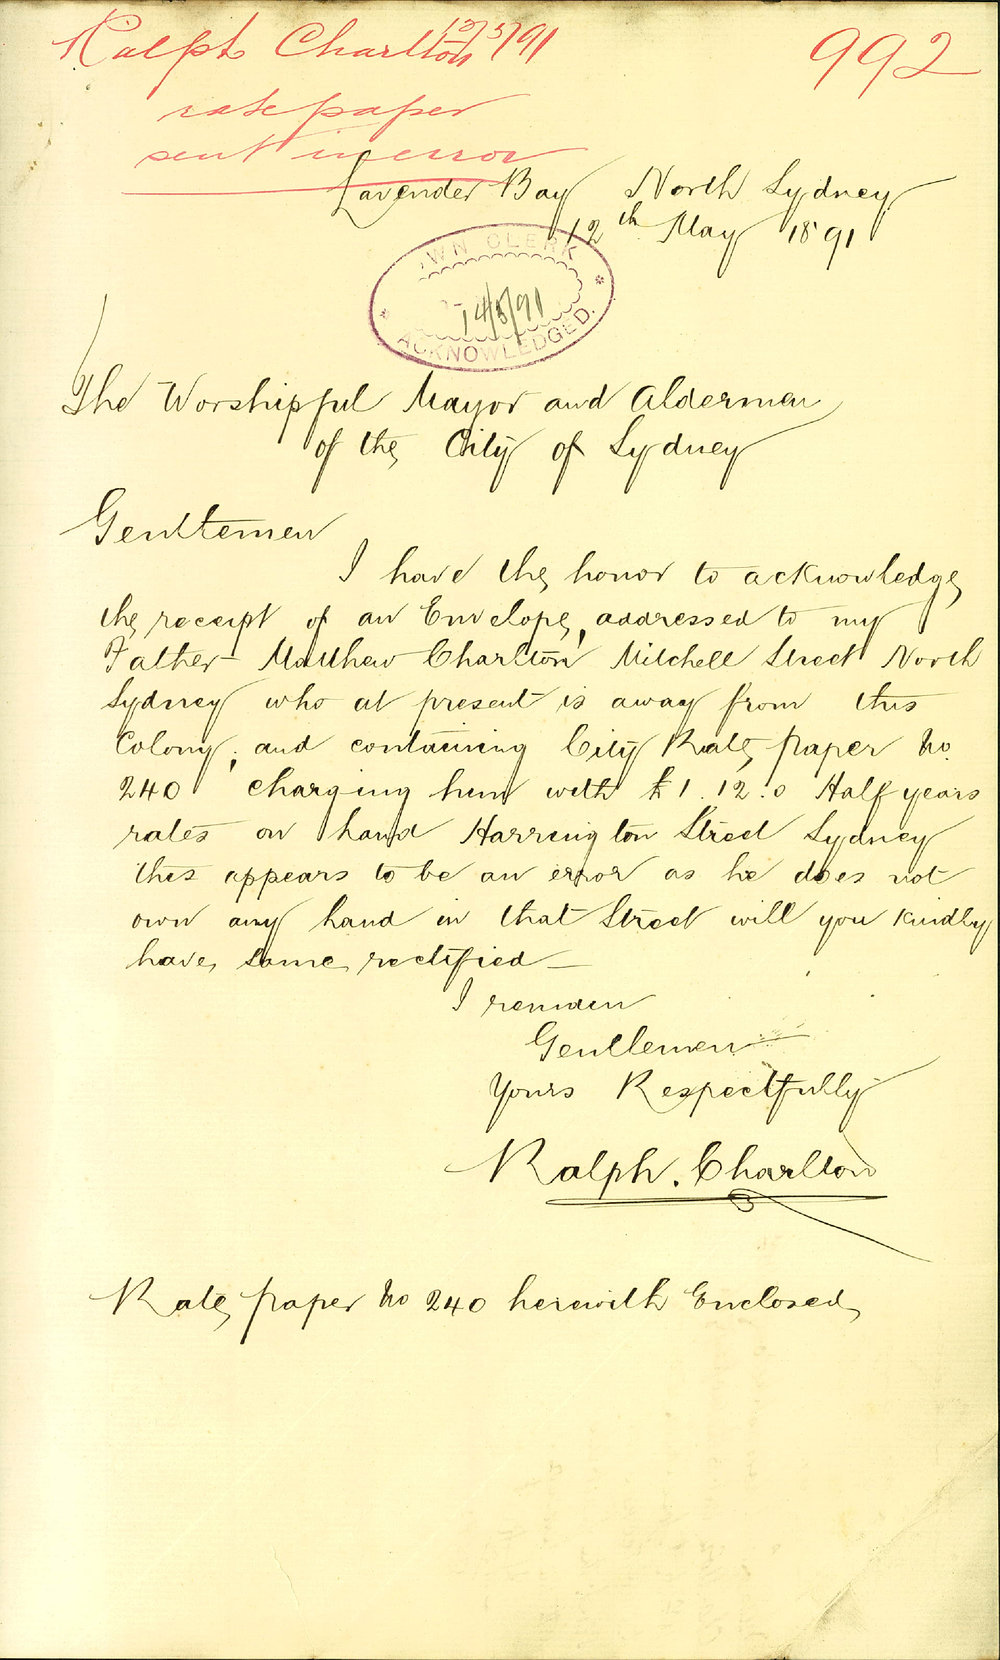 Ralph Charlton 12/5/91
992
rate paper
sent in error
Lavender Bay North Sydney
12th May 1891
OWN CLERK
14/5/91
ACKNOWLEDGED.
The Worshipful Mayor and Aldermen
of the City of Sydney
Gentlemen
I have the honor to acknowledge
the receipt of an Envelope, addressed to my
Father Matthew Charlton Mitchell Street North
Sydney who at present is away from this
Colony, and containing City Rate paper No.
240 charging him with £1.12.0 Half years
rates on Land Harrington Street Sydney
this appears to be an error as he does not
own any Land in that Street will you kindly
have same rectified—
I remain
Gentlemen
Yours Respectfully
Ralph. Charlton
Rate paper No 240 herewith Enclosed